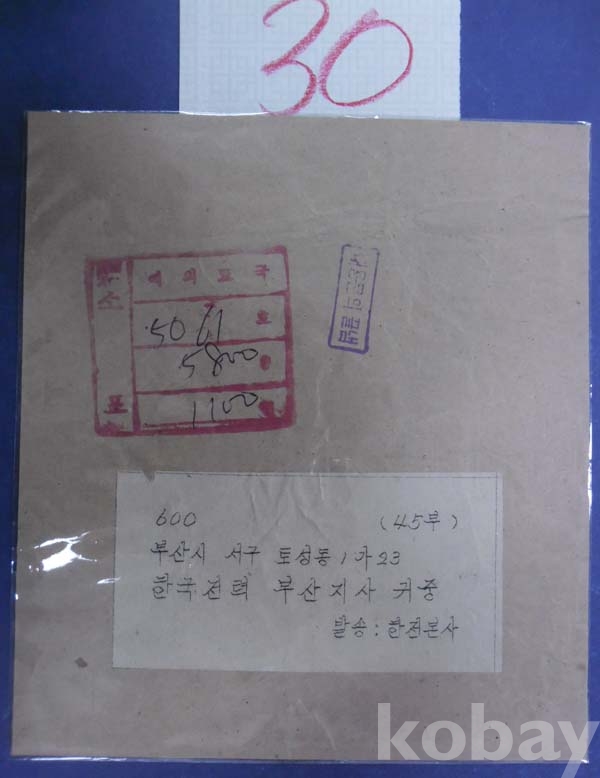 30
여의도국
5061 호
5800
1100
600 (45부)
부산시 서구 토성동 1가 23
한국전력 부산지사 귀중
발송 : 한전본사
kobay